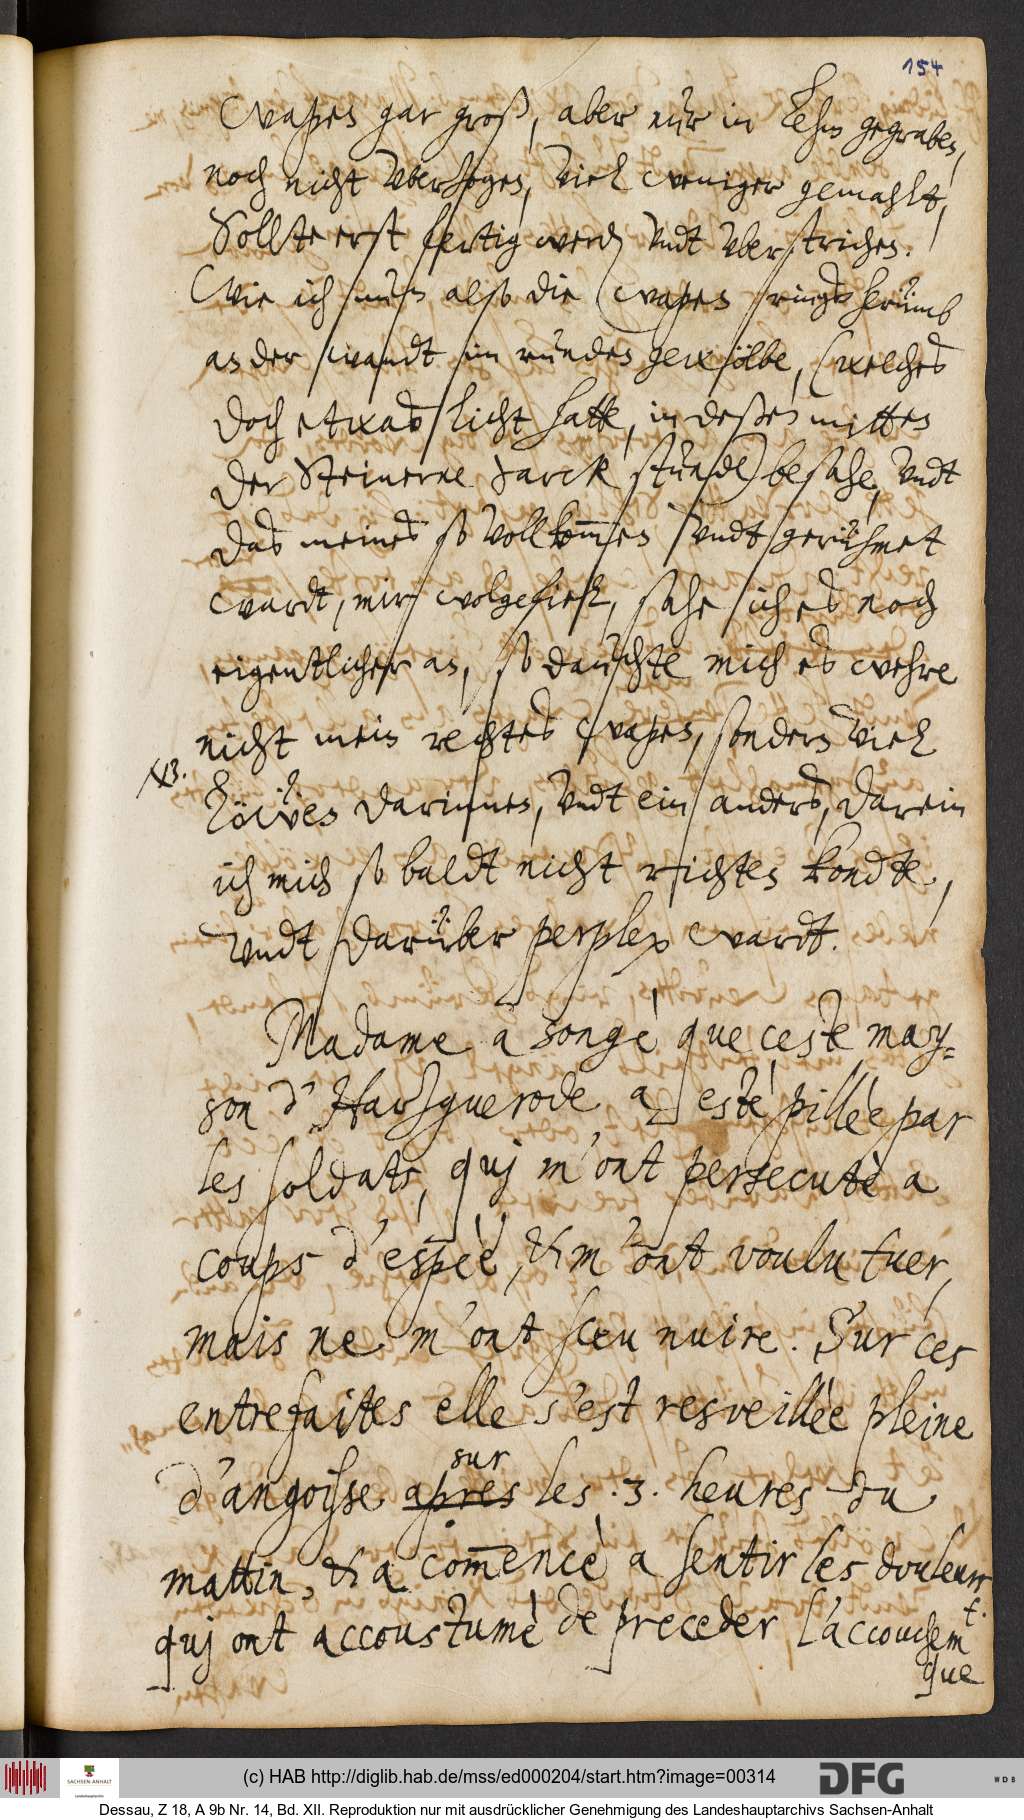 154
wapen gar groß, aber nur in Lehm gegraben,
noch nicht vberzogen, viel weniger gemahlt,
Sollte erst fertig werden vndt vberstrichen.
Wie ich nun also die wapen rings herumb
an der wandt im runden gewölbe, (welches
doch etwas licht hatte, in deßen mitten
der Steinerne Sarck stunde) besahe, vndt
das meines so vollkom̅en vndt gerühmet
wardt, mir wolgefiel, sahe ich es noch
eigentlicher an, so dauchte mich es wehre
nicht mein rechtes wapen, sondern viel
NB.
Löwen darinnen, vndt ein anders, darein
ich mich so baldt nicht richten kondte,
vndt darüber perplex wardt.
Madame a songè que ceste may=
son d'Hartzguerode a estè pillèe par
les soldats, quj m'ont persecutè a
coups d'espèe, & m'ont voulu tuer,
mais ne m'ont sceu nuire. Sur ces
entrefaites elle s'est resveillèe pleine
sur
d'angoisse apres les .3. heures du
mattin, & a com̅encè a sentir les douleurs
quj ont accoustumè de preceder l'accouchem̅t.
que
(c) HAB http://diglib.hab.de/mss/ed000204/start.htm?image=00314
SACHSEN-ANHALT
DFG
WDB
Dessau, Z 18, A 9b Nr. 14, Bd. XII. Reproduktion nur mit ausdrücklicher Genehmigung des Landeshauptarchivs Sachsen-Anhalt